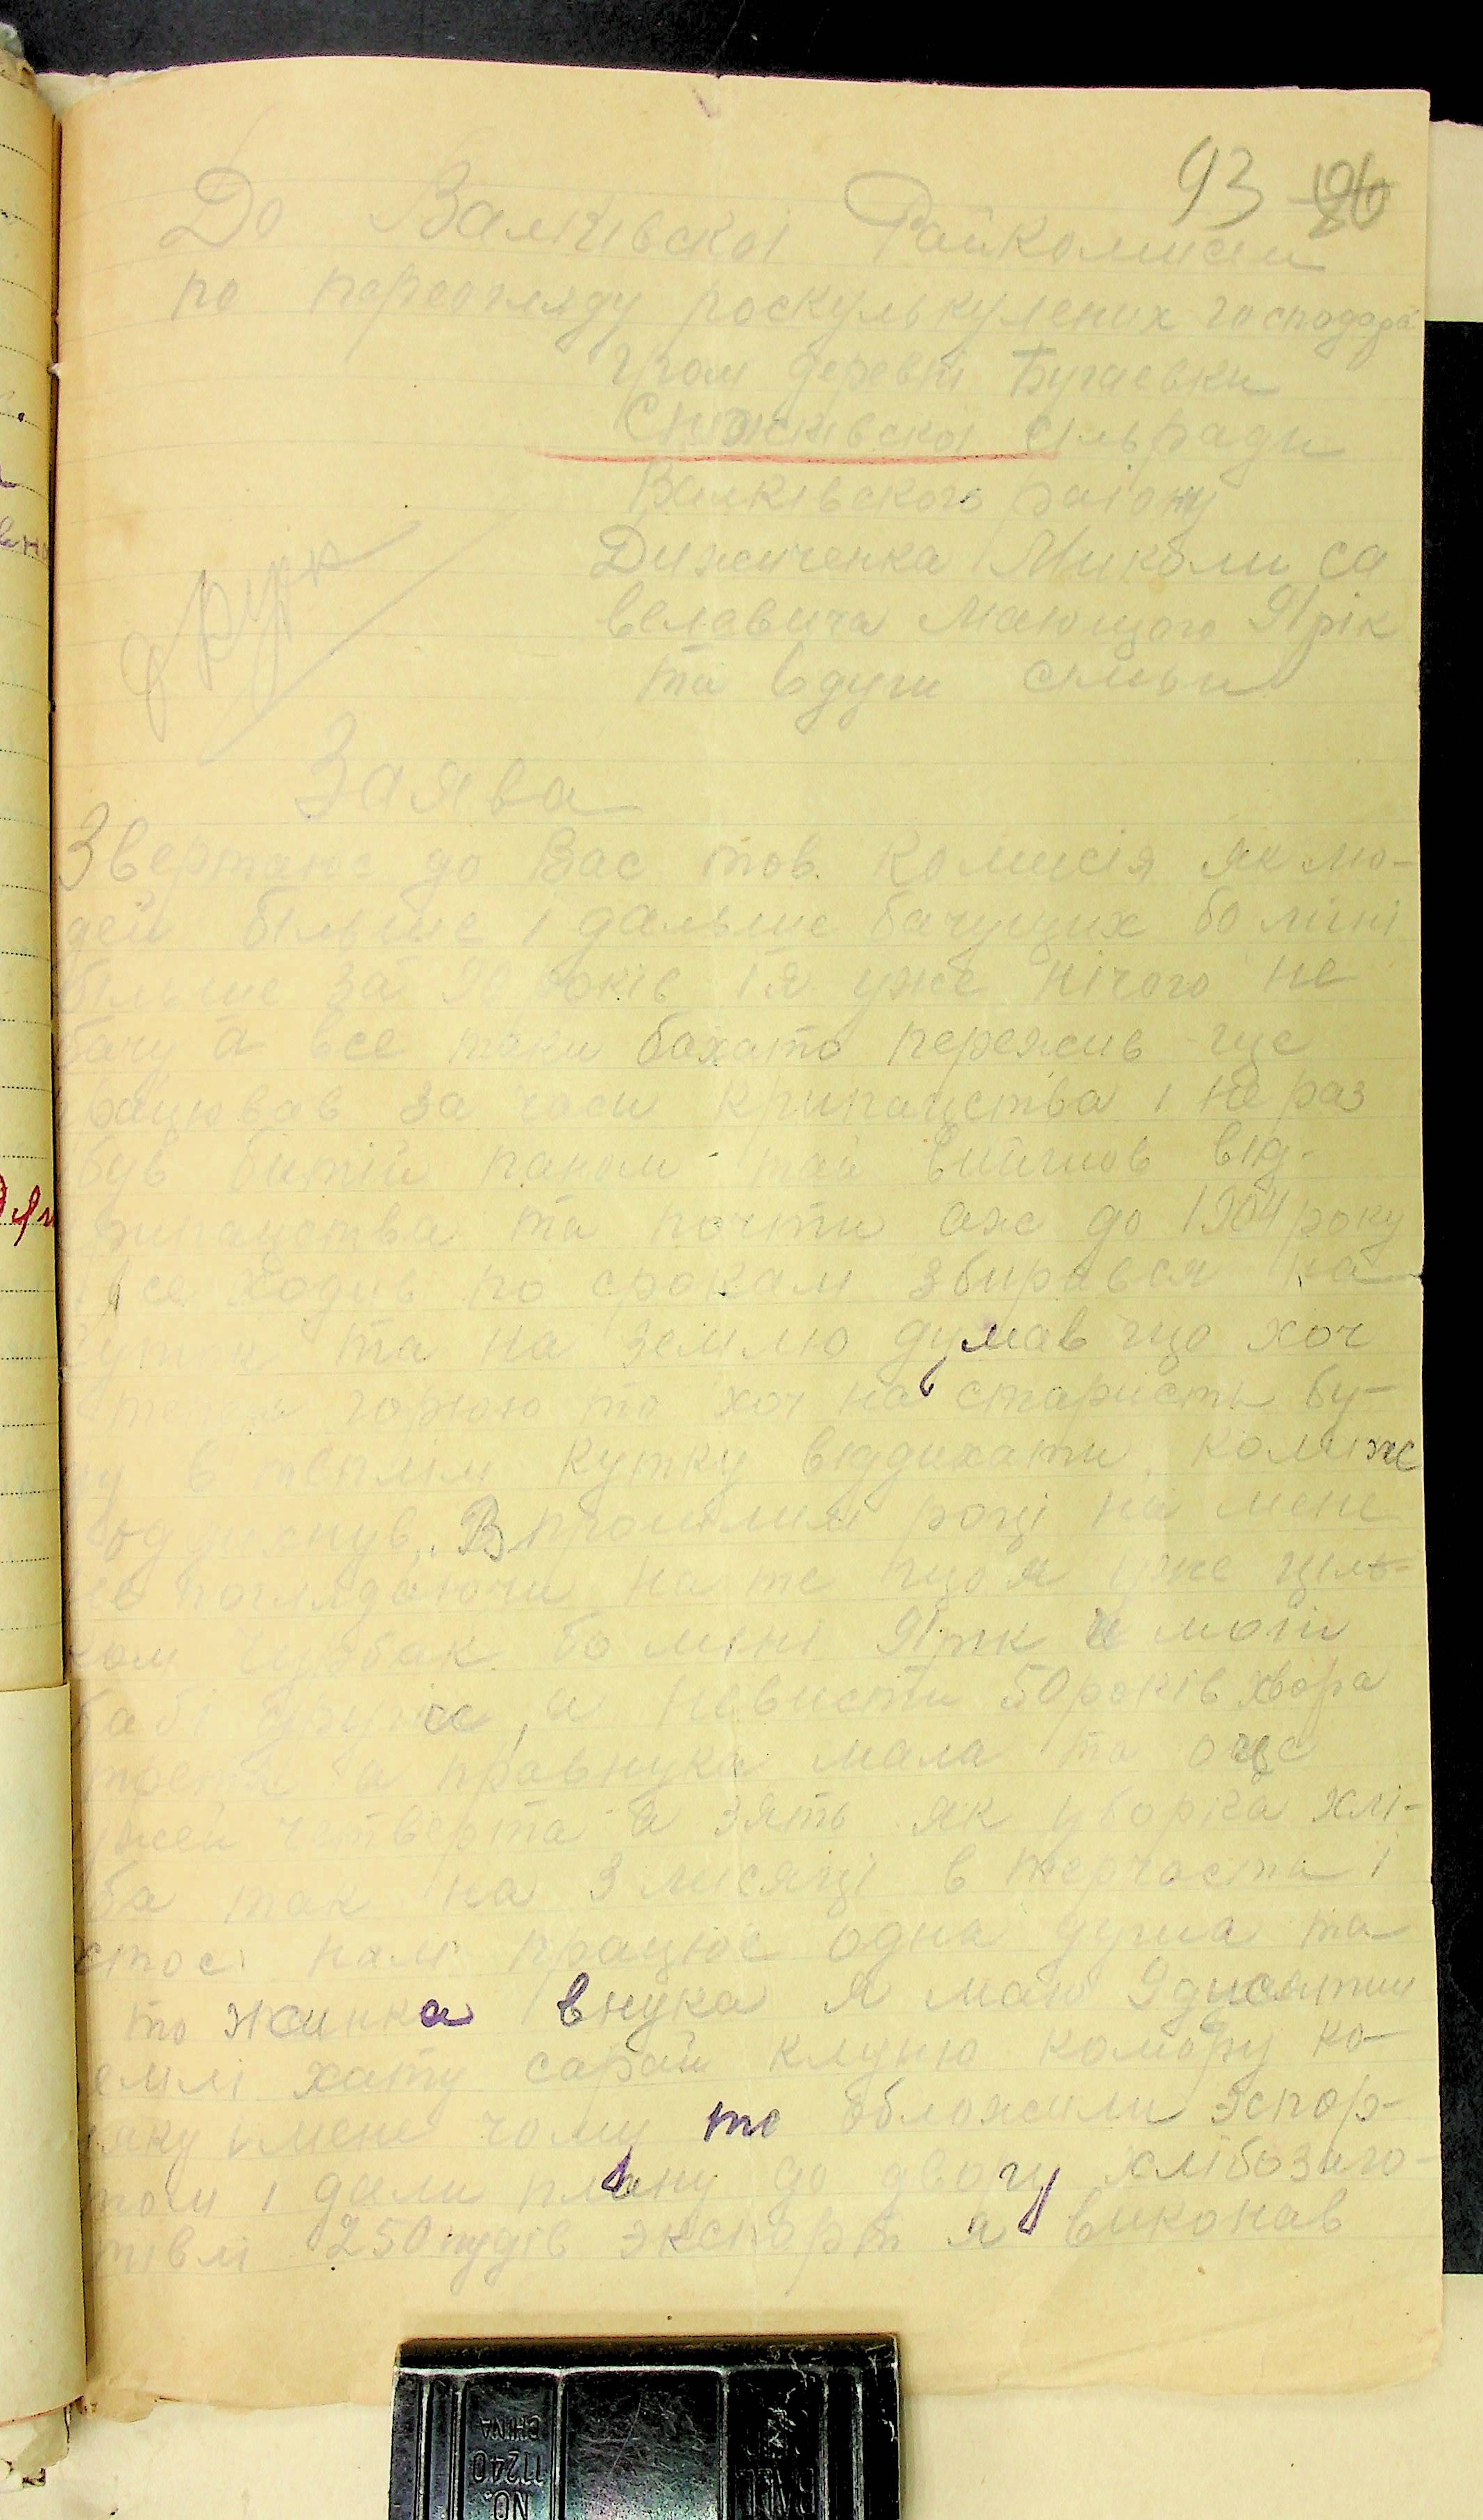 93 96
До Валківскоі Райкомисии
по переогляду роскулькулених господарс
Гром деревні Бугаевки
Сніжківскоі сільради
Валківского раіону
Дижиченка Миколи Са
велевича мающого 91 рік
та вдули сімьи
друк
Заява
Звертаюс до Вас тов. комисія як лю-
дей більше і дальше бачущих бо міні
більше за 90 років і я уже нічого не
бачу а все таки бахато пережив ще
працював за часи крипацства і не раз
був битій паном тай вийшов від-
крипацства та почти аж до 1904 року
все ходив по срокам збирався на
та на землю думав що хоч
горюю то хоч на старисть бу-
ду в теплім кутку віддихати, колиж
оддихнув. В прошлим році на мене
не поглядаючи на те що я уже ціль-
ком чурбак бо міні 91 рік а моій
бабі друге, а невисти 50 років хвора
третя а правнука мала та оце
ужей четверта а зять як уборка хлі-
ба так на 3 мисяці в терчасти і
стое нам працюе одна душа та
то жинка внука я маю 9 дисятин
землі хату сарай клуню комору ко-
няку імене чому то обложили эспор-
том і дали плану до двору хлібозаго-
тівлі 250 пудів экспорт я виконав